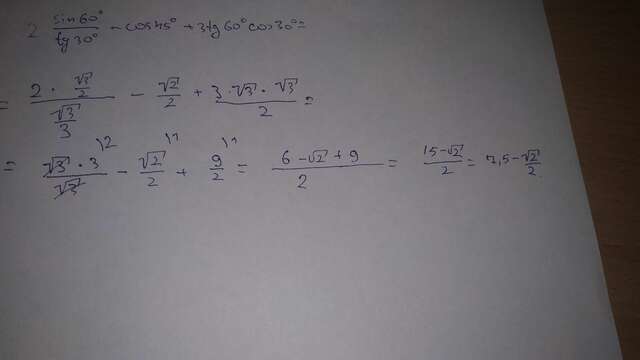 2 sin60°/tg30° - cos45° + 3tg60°cos30° =
= (2 · √3/2)/(√3/3) - √2/2 + (3 · √3 · √3)/2 =
= (√3 · 3)/√3 \2 - √2/2 \1 + 9/2 \1 = (6 - √2 + 9)/2 = (15 - √2)/2 = 7,5 - √2/2